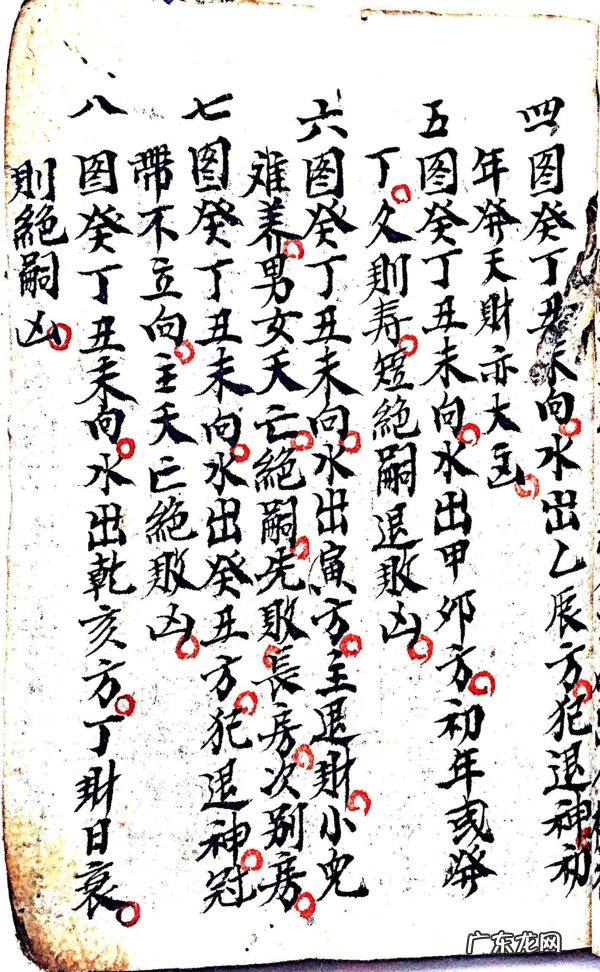 四图癸丁丑未向水出乙辰方犯退神初
年發天財亦大凶
五图癸丁丑未向水出甲卯方初年或發
丁久則寿短絕嗣退敗凶
六图癸丁丑未向水出寅方主退財小兒
难养男女夭亡絕嗣先敗長房次别房
七图癸丁丑未向水出癸丑方犯退神冠
帶不立向主夭亡絕敗凶
八图癸丁丑未向水出乾亥方丁財日衰
則絕嗣凶
广东龙网